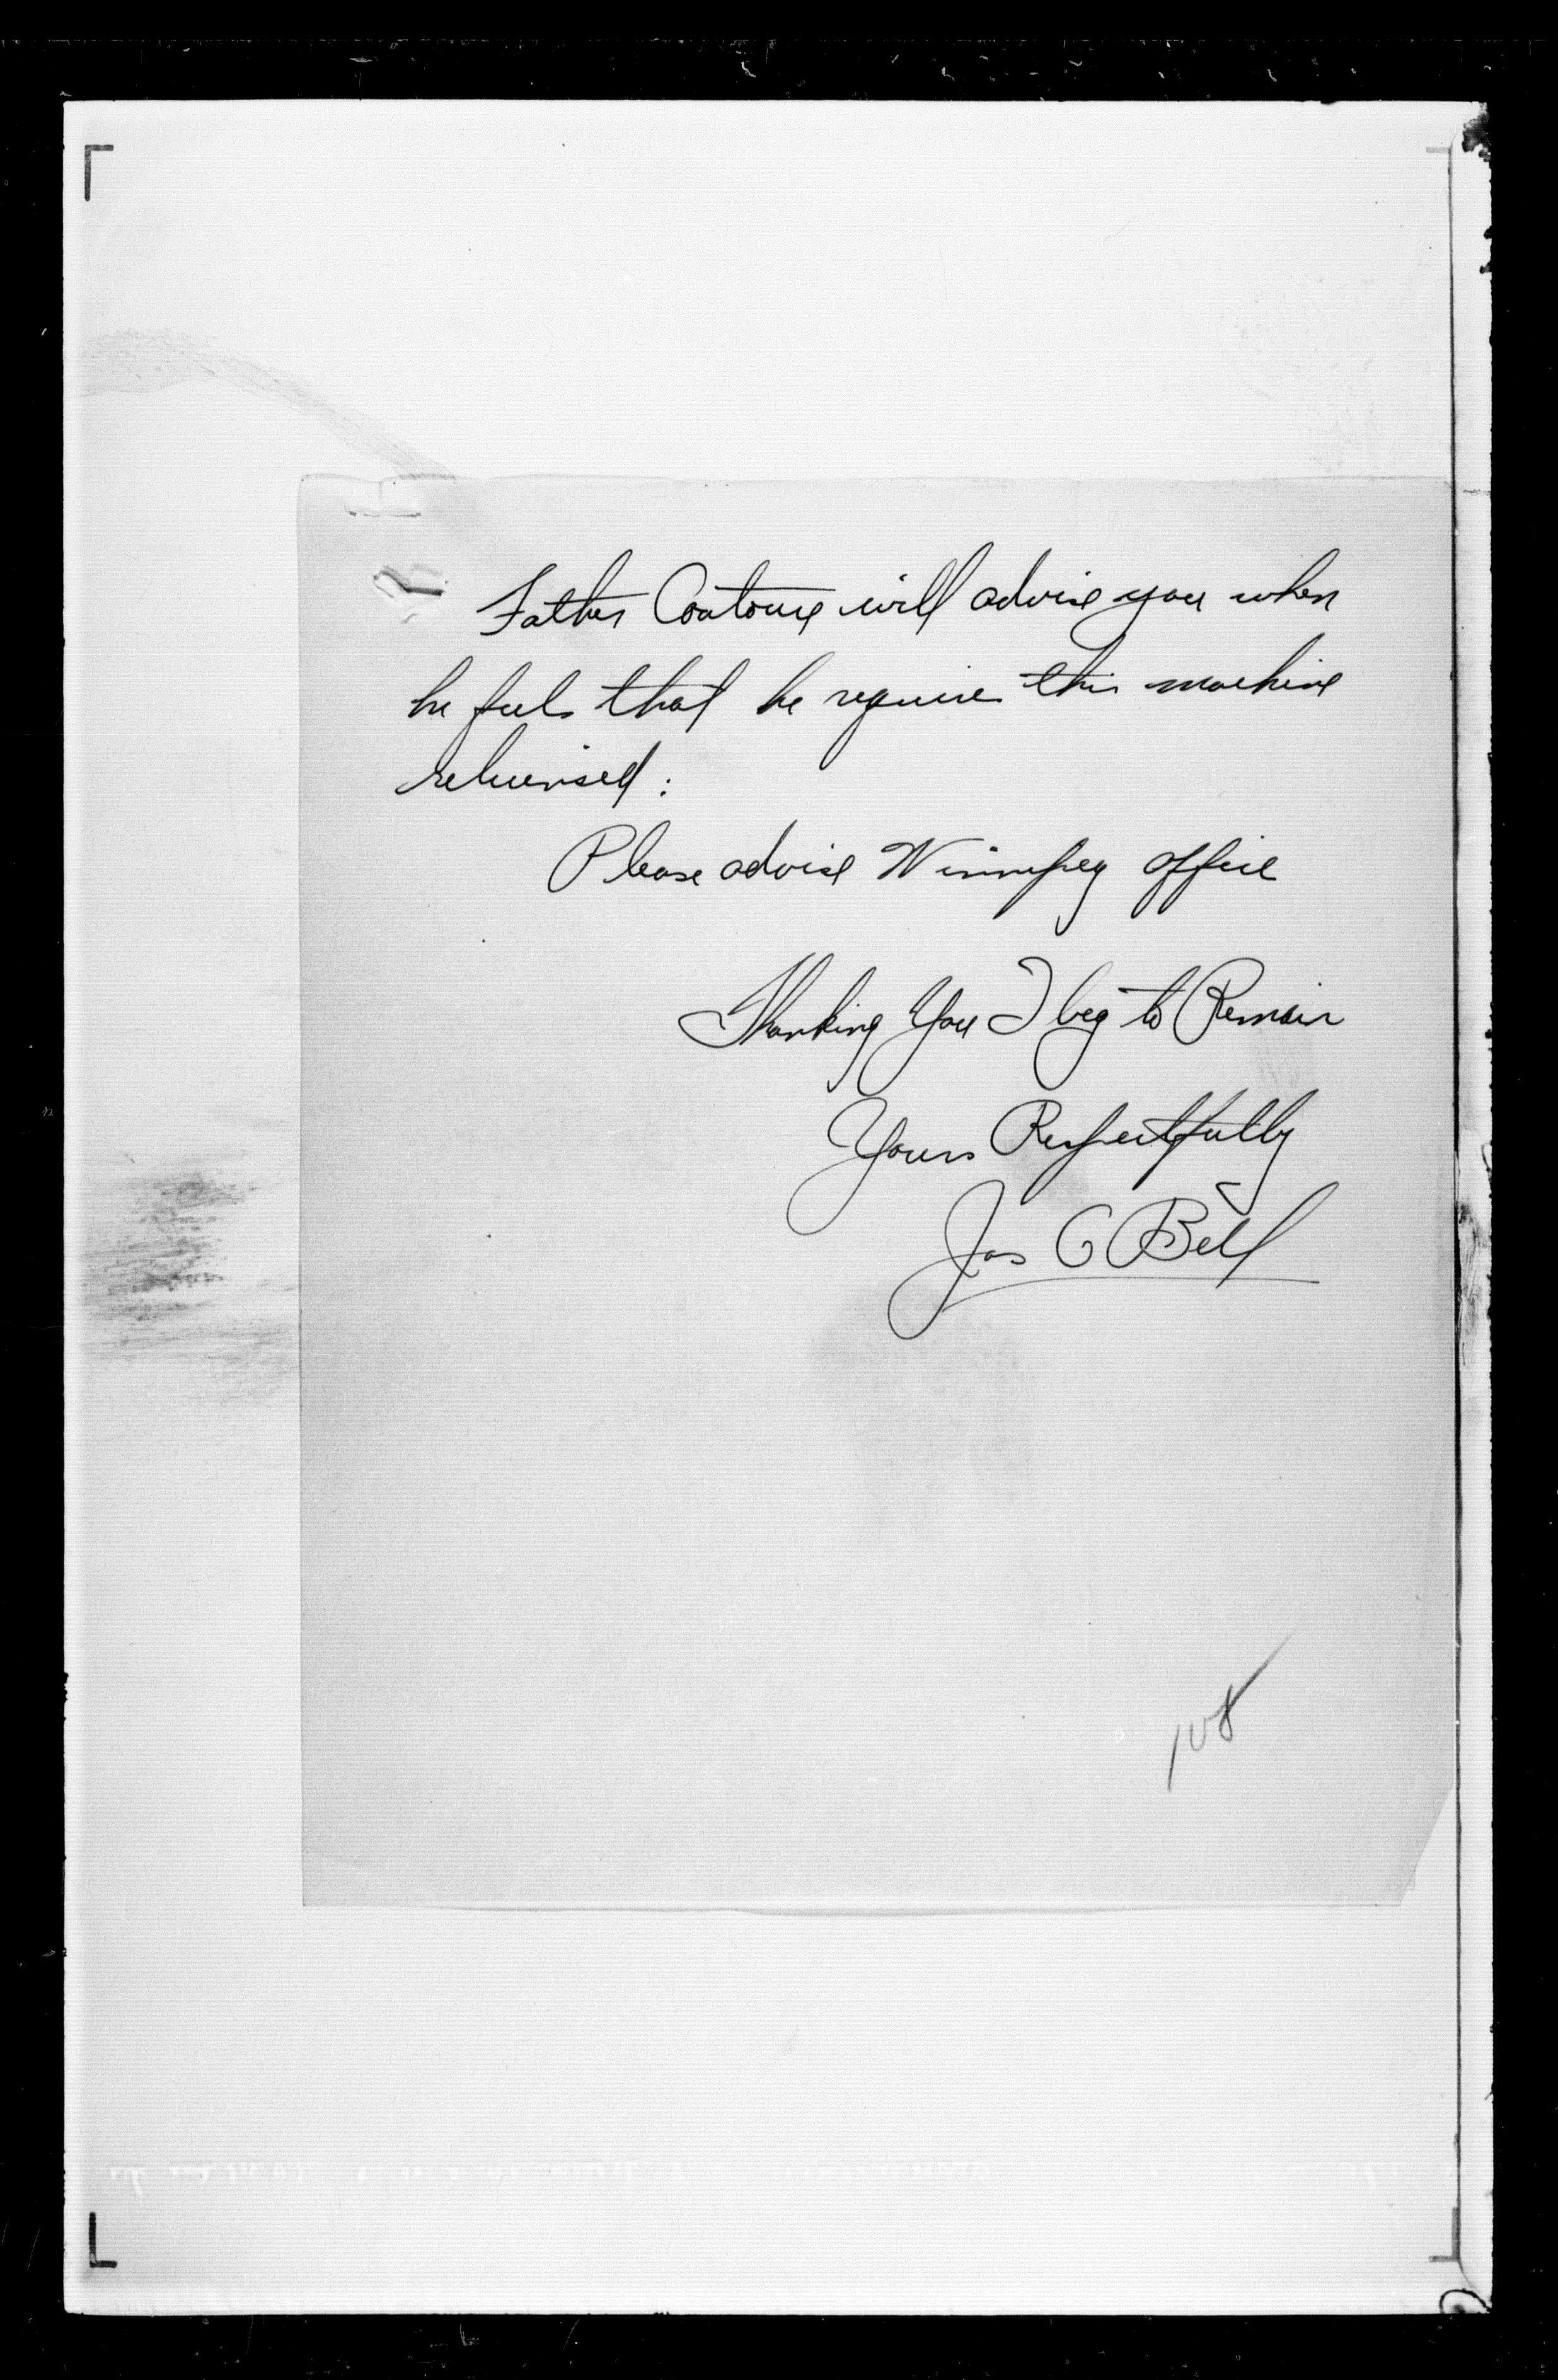 Father Couture will advise you when
he feels that he require this machine
relicensed :
Please advise Winnipeg office
Thanking You I beg to Remain
Yours Respectfully
Jas C Bell
108